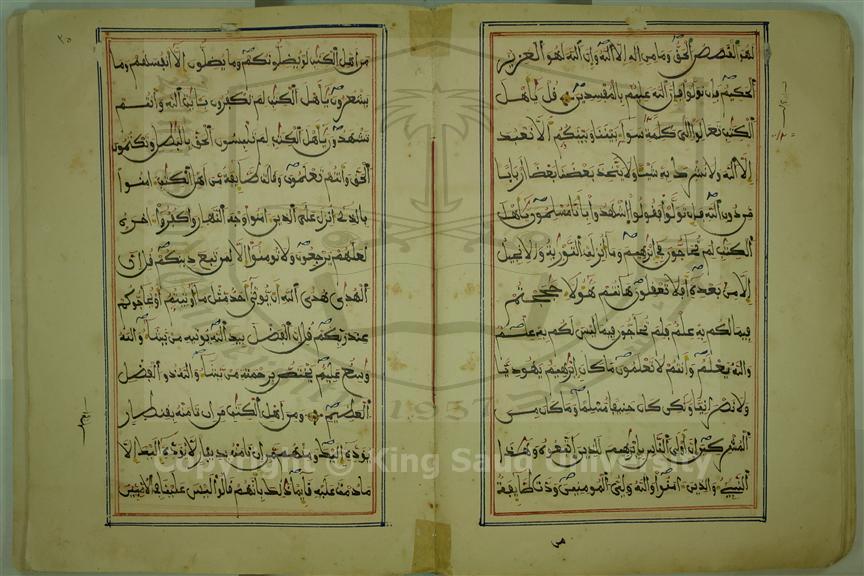 لهو القصص الحق وما من اله الا الله وان الله لهو العزيز
الحكيم فان تولوا فان الله عليم بالمفسدين قل ياهل
الكتب تعالوا الى كلمة سواء بيننا وبينكم الا نعبد
الا الله ولا نشرك به شيئا ولا يتخذ بعضنا بعضا اربابا
من دون الله فان تولوا فقولوا اشهدوا بانا مسلمون ياهل
الكتب لم تحاجون في ابرهيم وما انزلت التورية والانجيل
الا من بعده افلا تعقلون هانتم هولاء حججتم
فيما لكم به علم فلم تحاجون فيما ليس لكم به علم
والله يعلم وانتم لا تعلمون ما كان ابرهيم يهوديا
ولا نصرانيا ولكن كان حنيفا مسلما وما كان من
المشركين ان اولى الناس بابرهيم للذين اتبعوه وهذا
النبيء والذين امنوا والله ولي المومنين ودت طايفة
من
٣٥
من اهل الكتب لو يضلونكم وما يضلون الا انفسهم وما
يشعرون ياهل الكتب لم تكفرون بايت الله وانتم
تشهدون ياهل الكتب لم تلبسون الحق بالبطل وتكتمون
الحق وانتم تعلمون وقالت طايفة من اهل الكتب امنوا
بالذي انزل على الذين امنوا وجه النهار واكفروا اخره
لعلهم يرجعون ولا تومنوا الا لمن تبع دينكم قل ان
الهدى هدى الله ان يوتى احد مثل ما اوتيتم او يحاجوكم
عند ربكم قل ان الفضل بيد الله يوتيه من يشاء والله
وسع عليم يختص برحمته من يشاء والله ذو الفضل
العظيم ومن اهل الكتب من ان تامنه بقنطار
يوده اليك ومنهم من ان تامنه بدينار لا يوده اليك الا
ما دمت عليه قايما ذلك بانهم قالوا ليس علينا في الامين
1957
Copyright © King Saud University